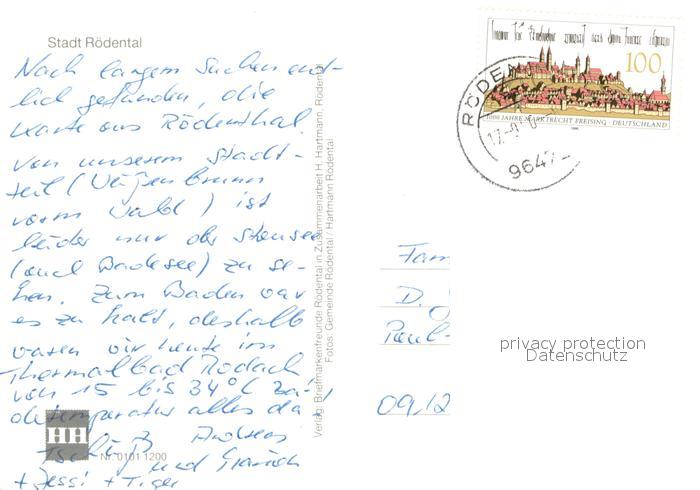 Stadt Rödental
Nach langem Suchen end-
lich gefunden, die
Karte aus Rödenthal.
Von unserem Stadt-
teil (Weißenbrunn
vorm Wald) ist
leider nur der Stausee
(auch Badesee) zu se-
hen. Zum Baden war
es zu kalt, deshalb
waren wir heute im
Thermalbad Rodach
von 15 bis 34°C Ba-
detemperatur alles da.
Tschüß Andreas
und
+ Jessi + Tiger
HH
Nr. 0101 1200
Verlag: Briefmarkenfreunde Rödental in Zusammenarbeit H. Hartmann, Rödental
Fotos: Gemeinde Rödental / Hartmann Rödental
100
1000 JAHRE MARKTRECHT FREISING · DEUTSCHLAND
1996
RÖDEN
9647
Fam
D.
Paul-
09,12
privacy protection
Datenschutz